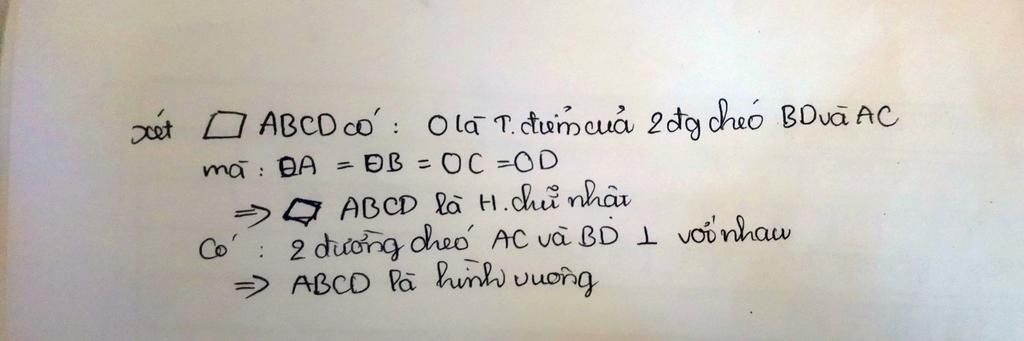 xét ▱ ABCD có : O là T.điểm của 2 đg chéo BD và AC
mà : OA = OB = OC = OD
=> ▱ ABCD là H.chữ nhật
Có : 2 đường chéo AC và BD ⊥ với nhau
=> ABCD là hình vuông